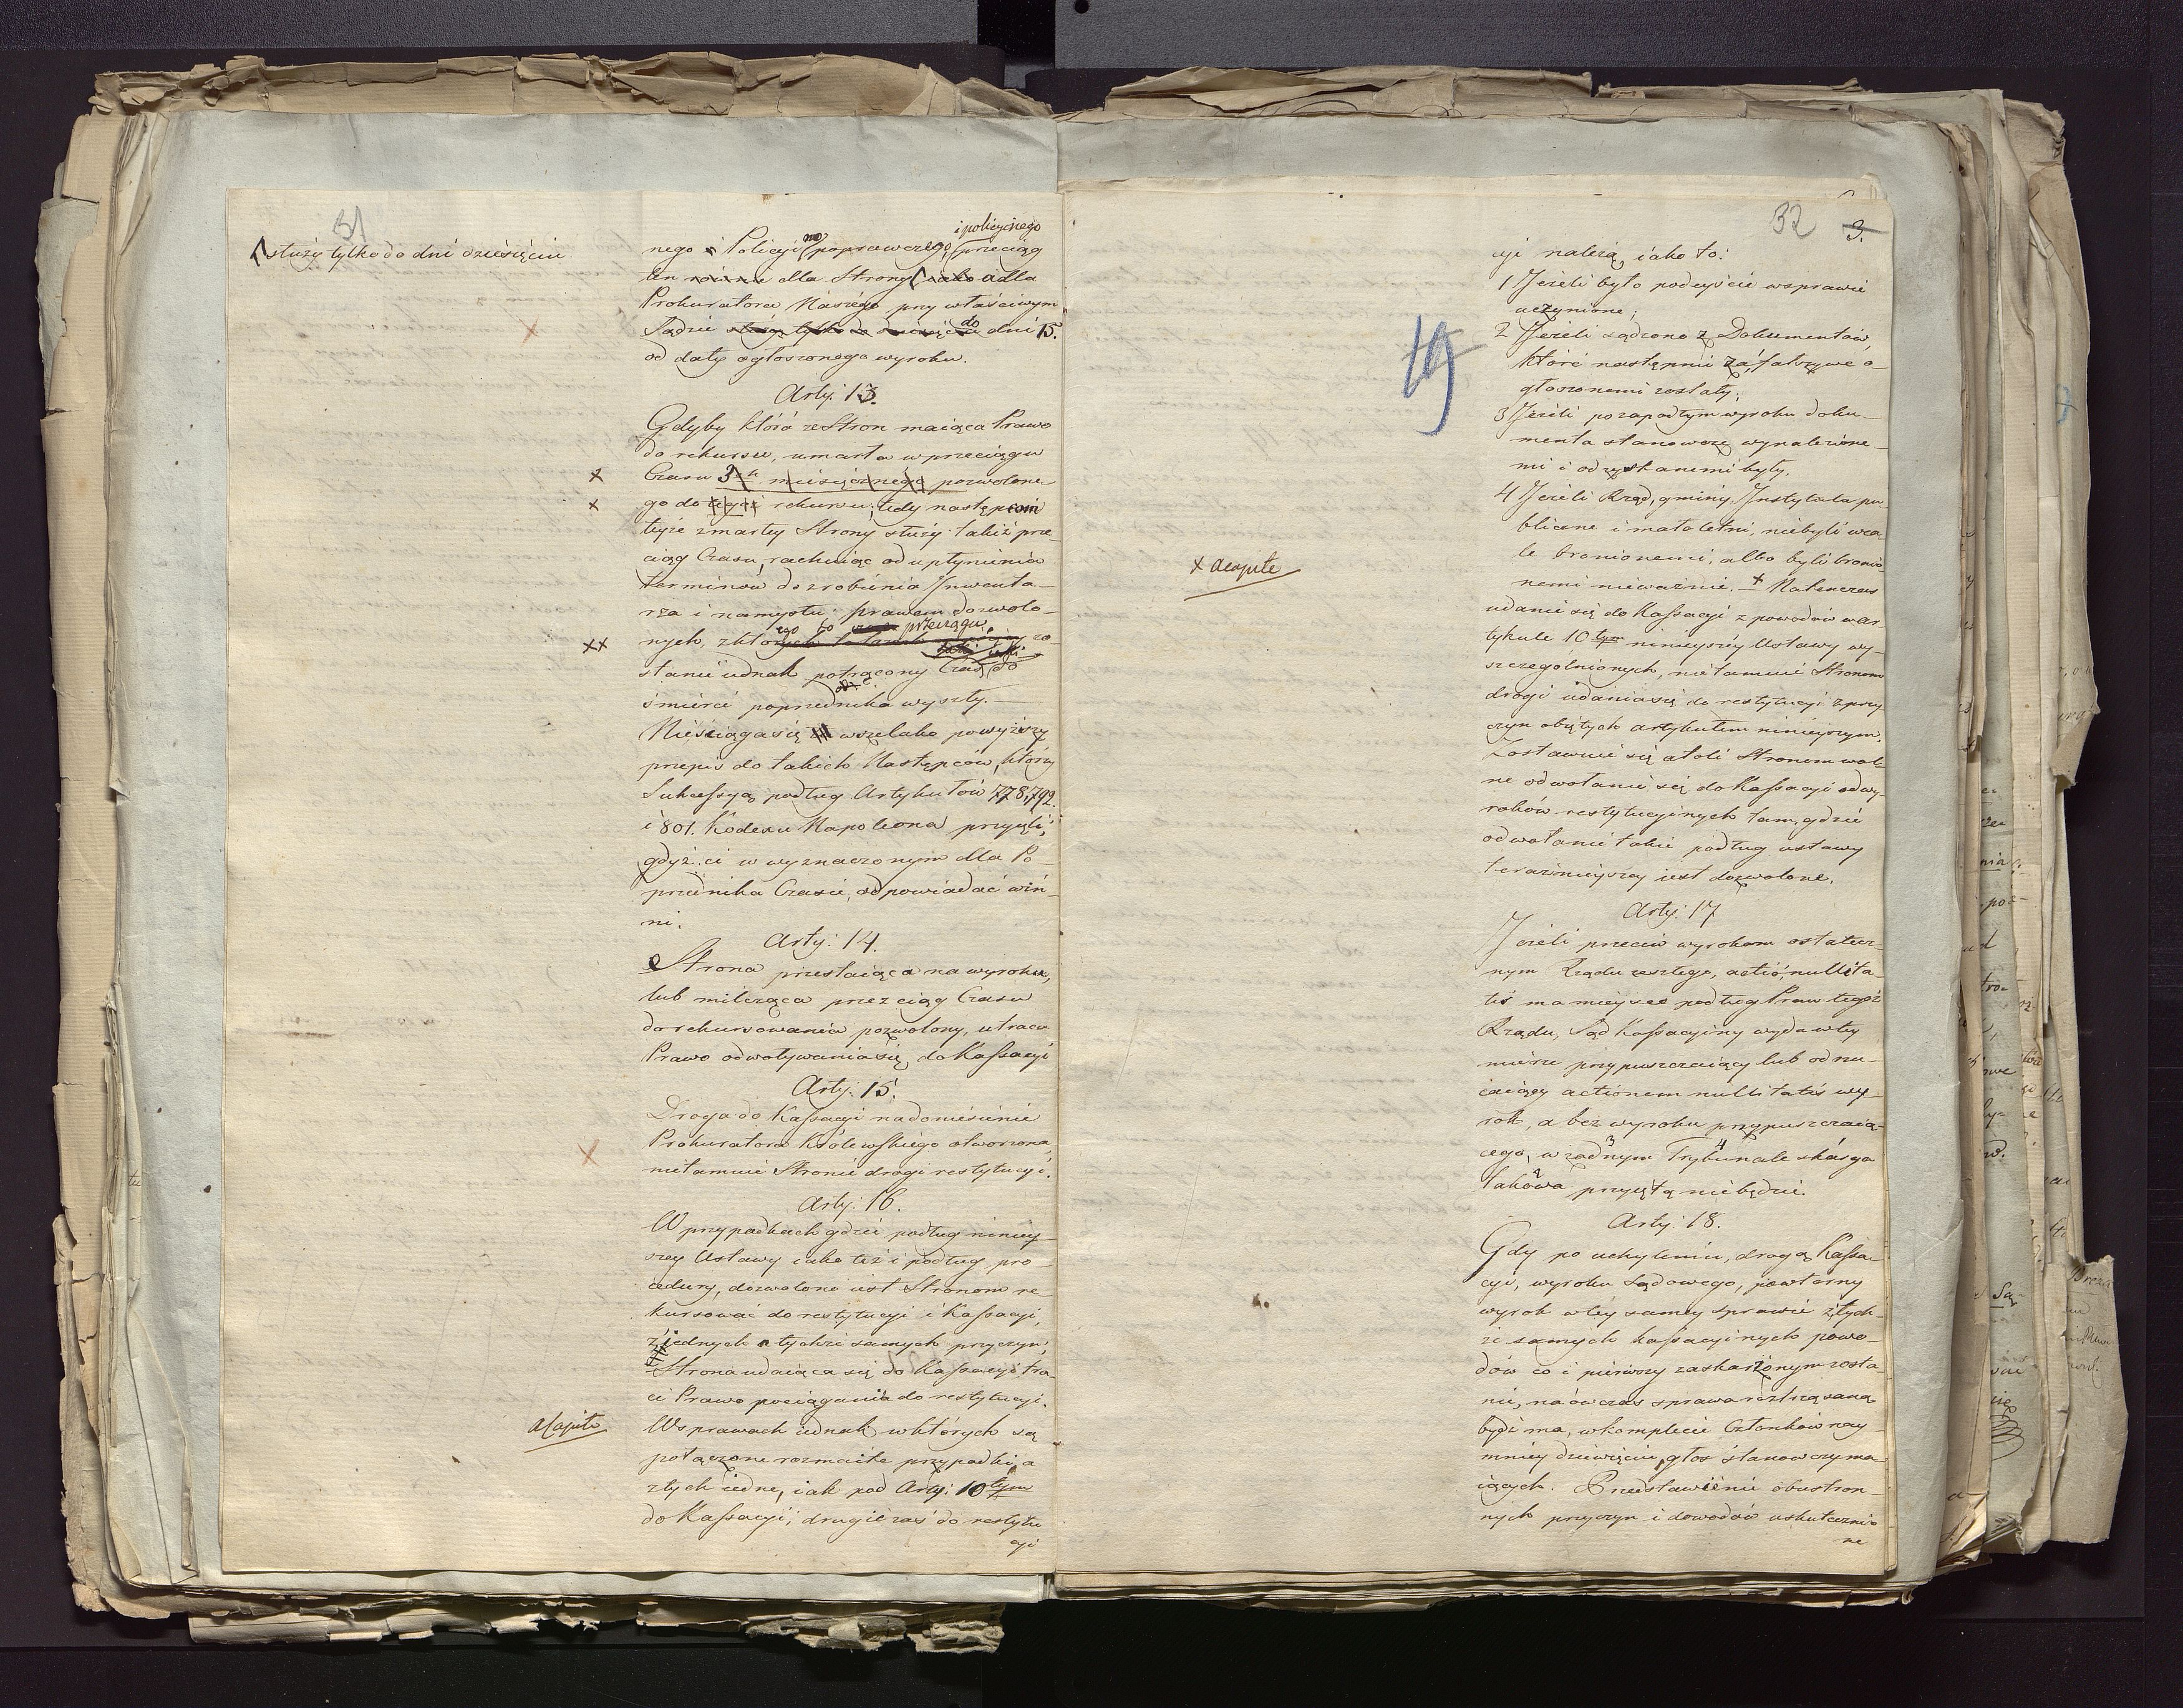 31
służy tylko do dni dziesięciu
i policyjnego
nego i Policyi no poprawczego, przeciąg
ten równie dla Strony iako a dla
Prokuratora Naszego przy właściwym
Sądzie służy tylko do dziesięciu do dni 15.
od daty ogłoszonego wyroku.
Arty: 13.
Gdyby która ze Stron maiąca Prawo
do rekursu, umarła w przeciągu
x Czasu 3ch miesięcznego pozwolone
x go do tegoż rekursu; tedy następcom
teyże zmarłey Strony służy takiż prze-
ciąg Czasu, rachuiąc od upłynienia
terminów do zrobienia Inwenta-
rza i namysłu prawem dozwolo-
ego to przeciągu
xx nych, z których zo-
stanie iednak potrącony Czas, do
śmierci poprzednika wyszły.—
Nieściąga się wszelako powyższy
przepis do takich Następców, którzy
Sukcessyą podług Artykułów 778, 792.
i 801. Kodexu Napoleona przyięli,
gdyż ci w wyznaczonym dla Po-
przednika Czasie, odpowiadać win-
ni.
Arty: 14.
Strona przestaiąca na wyroku,
lub milcząca przez ciąg Czasu
do rekursowania pozwolony, utraca
Prawo odwoływania się do Kassacyi
Arty: 15.
Droga do Kassacyi na doniesienie
Prokuratora Królewskiego otworzona,
nietamuie Stronie drogi restytucyi.
Arty: 16.
W przypadkach gdzie podług niniey-
szey Ustawy iako też i podług pro-
cedury, dozwolone iest Stronom re-
kursować do restytucyi i Kassacyi,
z iednych a tychże samych przyczyn;
Strona udaiąca się do Kassacyi, tra-
ci Prawo pociągania do restytucyi.
a Capite W sprawach iednak w których są
połączone rozmaite przypadki, a
z tych iedne, iak pod Arty: 10tym
do Kassacyi; drugie zaś do restytu
cyi
32 3.
cyi należą, iako to:
1 Jeżeli było podeyście w sprawie
uczynione;
19
2 Jeżeli sądzono z Dokumentów,
które następnie za fałszywe o-
głoszonemi zostały;
3 Jeżeli po zapadłym wyroku doku-
menta stanowcze wynalezione-
mi i odzyskanemi były.
4 Jeżeli Rząd, gminy, Instytuta pu-
bliczne i małoletni, niebyli wca-
le bronionemi, albo byli bronio-
x acapite
nemi nieważnie.— x Natenczas
udanie się do Kassacyi z powodów w ar-
tykule 10tym ninieyszéy Ustawy wy-
szczególnionych, nietamuie Stronom
drogi udania się do restytucyi z przy-
czyn obiętych artykułem ninieyszym.
Zostawuie się atoli Stronom wol-
ne odwołanie się do Kassacyi od wy-
roków restytucyinych tam, gdzie
odwołanie takie podług ustawy
teraźnieyszey iest dozwolone.
Arty: 17
Jeżeli przeciw wyrokom ostatecz-
nym Rządu zeszłego, actio nullita-
tis ma mieysce podług Praw tegoż
Rządu, Sąd Kassacyiny wyda w tey
mierze przypuszczaiący lub odrzu-
caiący actionem nullitatis wy-
rok, a bez wyroku przypuszczaią-
3 4
cego, w żadnym Trybunale skarga
2
takowa przyiętą niebędzie.
Arty: 18.
Gdy po uchyleniu, drogą Kassa-
cyi, wyroku Sądowego, powtórny
wyrok w tey samey sprawie z tych-
że samych kassacyinych powo-
dów co i pierwszy zaskarżonym zosta-
nie, naówczas sprawa roztrząsaną
bydź ma, w komplecie Członków nay-
mniey dziewięciu, głos stanowczy ma-
iących. Przedstawienie obustron-
nych przyczyn i dowodów uskutecznio
ne